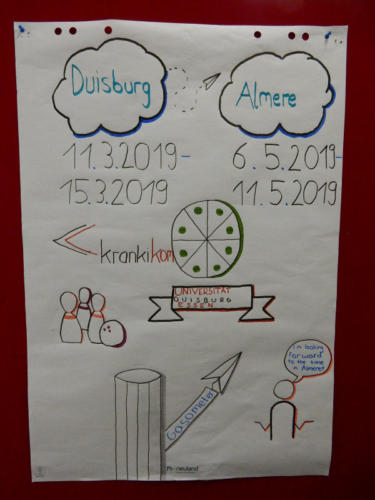 Duisburg
Almere
11.3.2019-
15.3.2019
6.5.2019-
11.5.2019
krankikom
UNIVERSITÄT
DUISBURG
ESSEN
I'm looking
forward
to the time
in Almere!
Gasometer
neuland